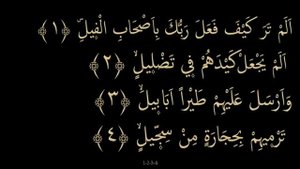 اَلَمْ تَرَ كَيْفَ فَعَلَ رَبُّكَ بِاَصْحَابِ الْفٖيلِۜ ﴿١﴾
اَلَمْ يَجْعَلْ كَيْدَهُمْ فٖي تَضْلٖيلٍۙ ﴿٢﴾
وَاَرْسَلَ عَلَيْهِمْ طَيْراً اَبَابٖيلَۙ ﴿٣﴾
تَرْمٖيهِمْ بِحِجَارَةٍ مِنْ سِجّٖيلٍۙ ﴿٤﴾
1-2-3-4